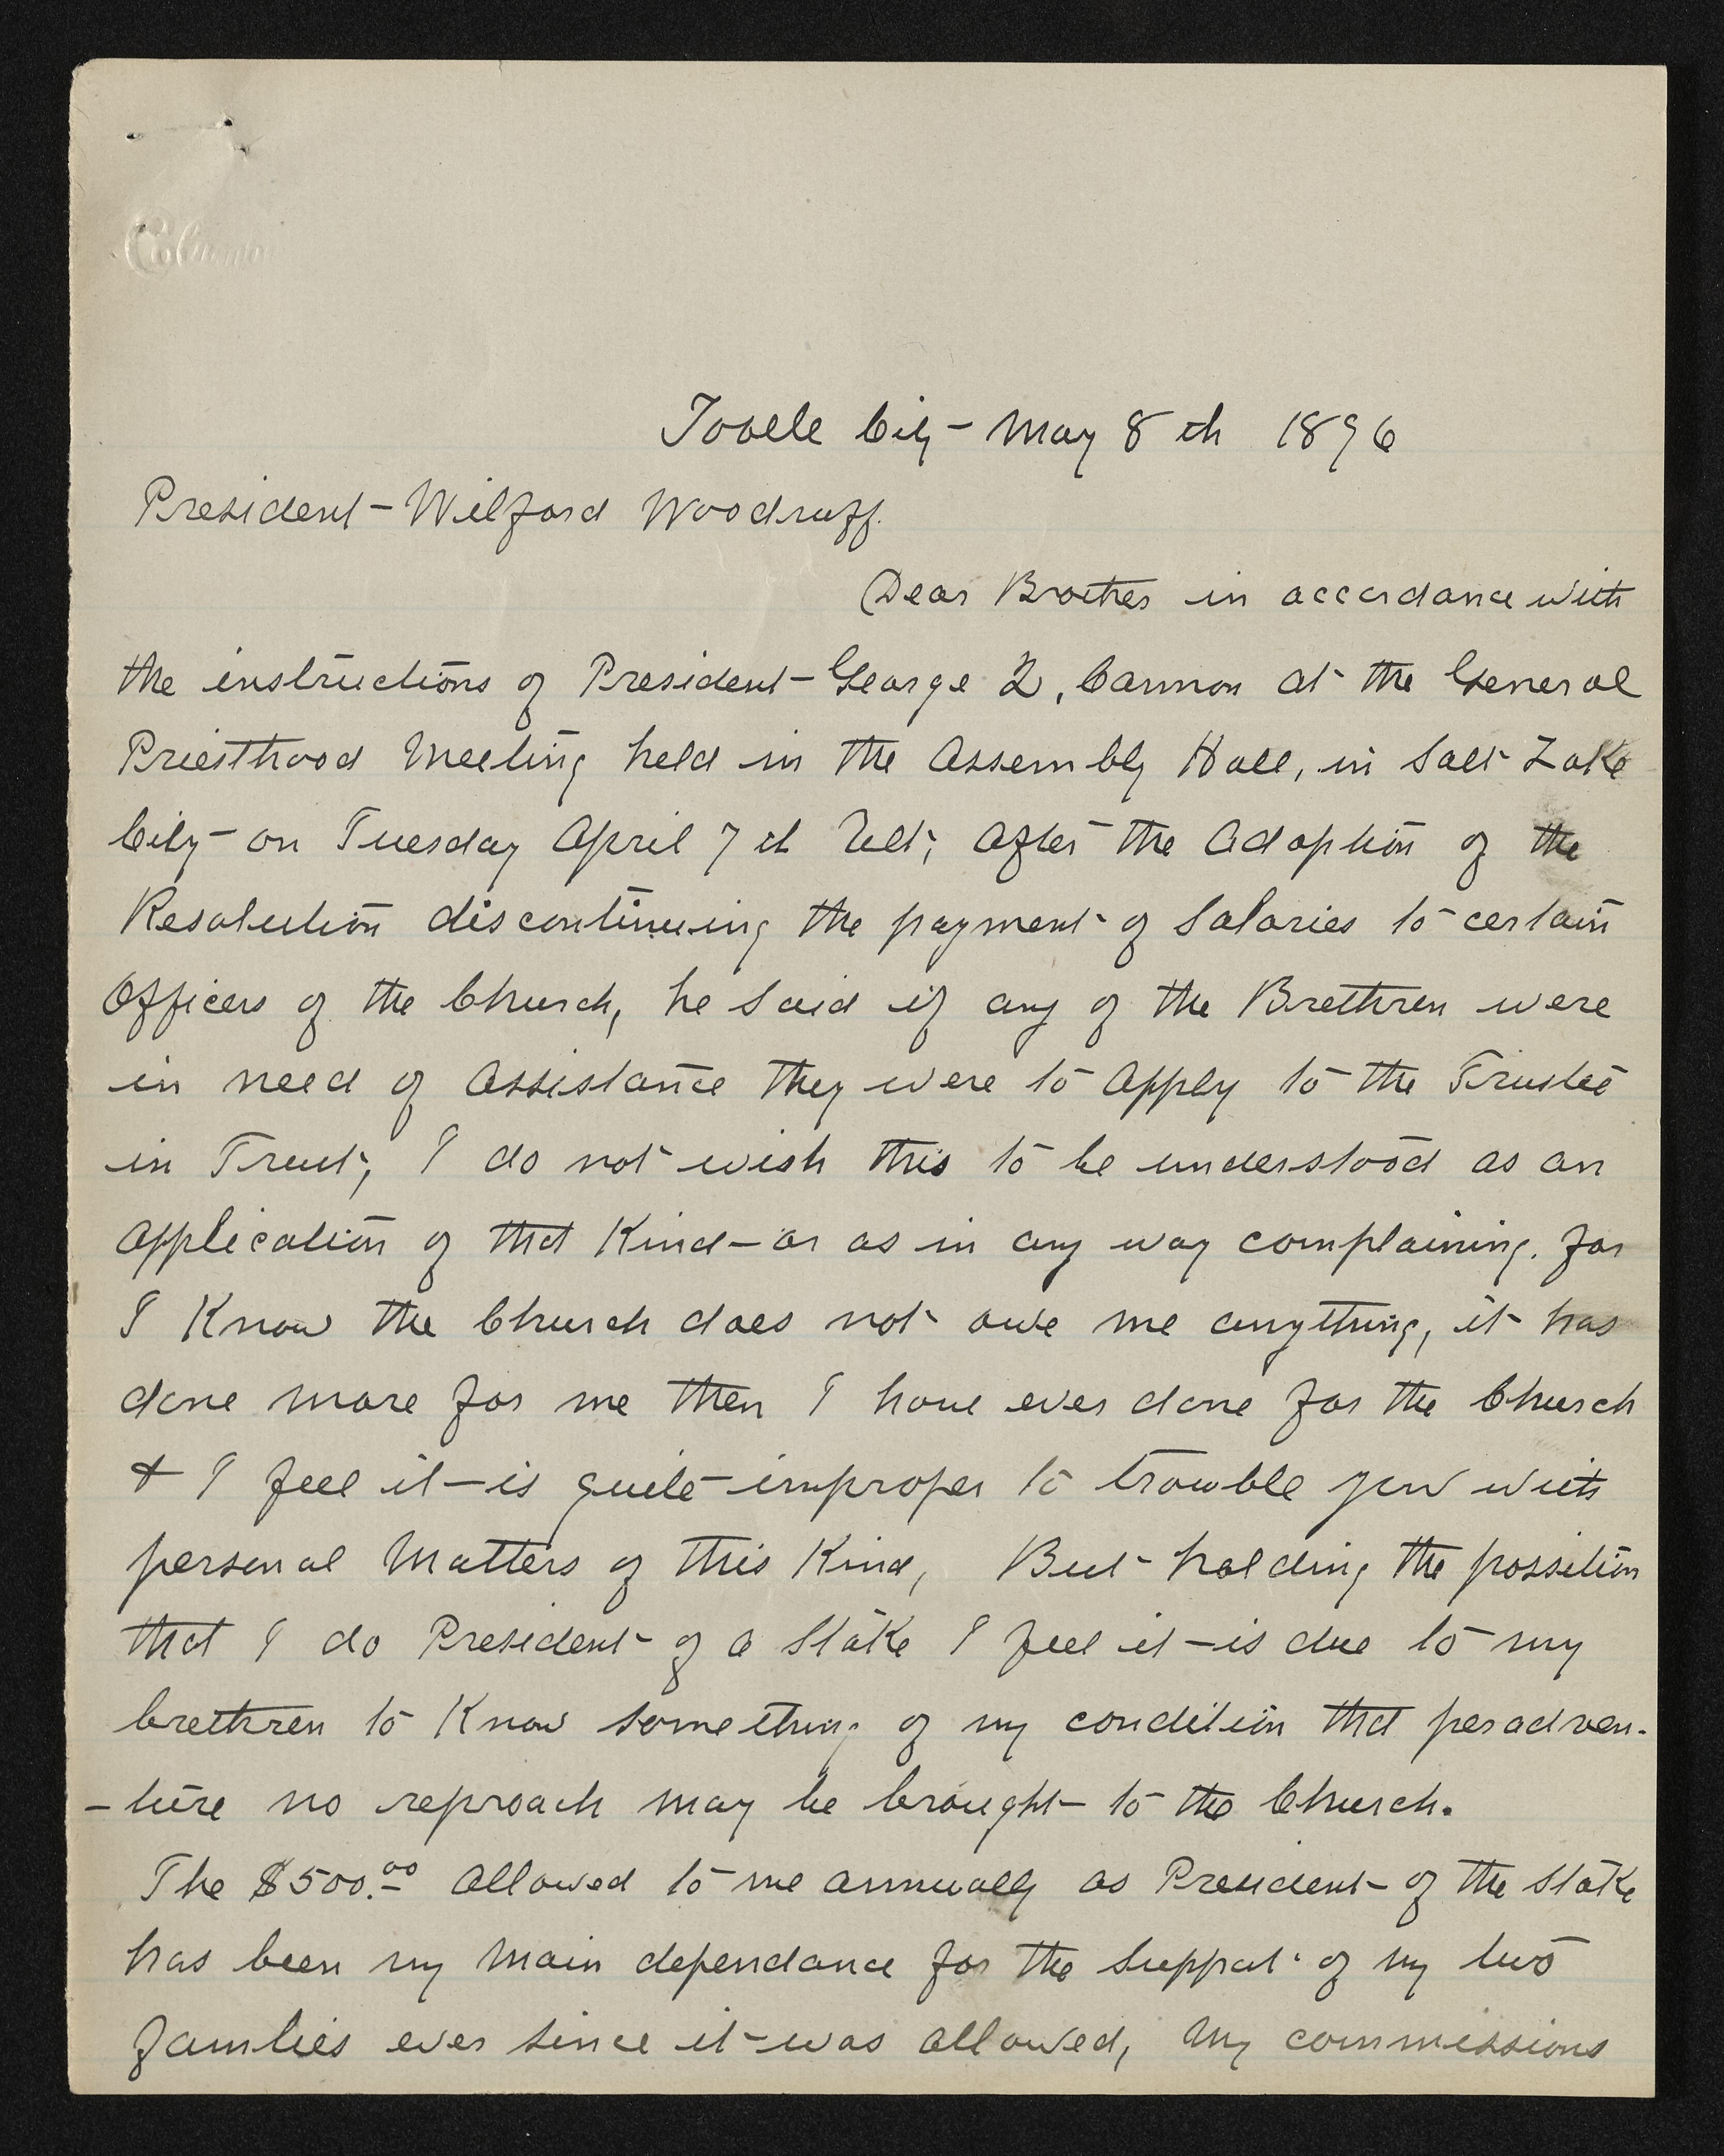 Tooele City May 8th 1896
President Wilford Woodruff.
Dear Brother in accordance with
the instructions of President George Q, Cannon at the General
Priesthood Meeting held in the Assembly Hall, in Salt Lake
City on Tuesday April 7th Ult; After the Adoption of the
Resolution discontinueing the payment of Salaries to certain
Officers of the Church, he said if any of the Brethren were
in need of Assistance they were to Apply to the Trustee
in Trust, I do not wish this to be understood as an
Application of that Kind or as in any way complaining. for
I Know the Church does not owe me anything, it has
done more for me then I have ever done for the Church
& I feel it is quite improper to trowble you with
personal Matters of this Kind, But holding the possition
that I do President of a Stake I feel it is due to my
brethren to Know something of my condition that peradven-
-ture no reproach may be brought to the Church.
The $500.00 Allowed to me annually as President of the Stake
has been my Main dependance for the Support of my two
families ever since it was allowed, My commissions